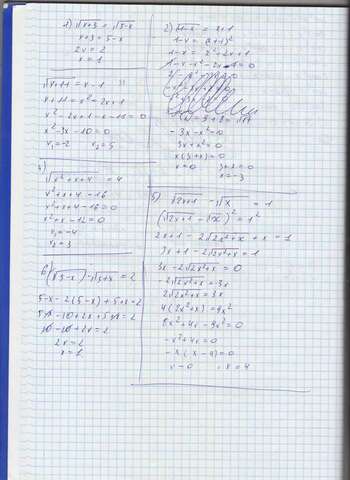 1) √x+3 = √5-x
x+3 = 5-x
2x = 2
x = 1
2) √1-x = x+1
1-x = (x+1)²
1-x = x²+2x+1
1-x-x²-2x-1=0
-3x-x²=0
3x+x²=0
x(3+x)=0
x=0 3+x=0
x=-3
√x+11 = x-1
x+11 = x²-2x+1
x²-2x+1-x-11=0
x²-3x-10=0
x₁=-2 x₂=5
4)
√x²+x+4 = 4
x²+x+4=16
x²+x+4-16=0
x²+x-12=0
x₁=-4
x₂=3
5) √2x+1 - √x = 1
(√2x+1 - √x)² = 1²
2x+1-2√2x²+x + x = 1
3x+1-2√2x²+x = 1
3x-2√2x²+x = 0
-2√2x²+x = -3x
2√2x²+x = 3x
4(2x²+x) = 9x²
8x²+4x-9x²=0
-x²+4x=0
-x(x-4)=0
x=0 x=4
6) √5-x - √5+x = 2
5-x-2(5-x)+5+x=2
-10+2x+5
2x=2
x=1